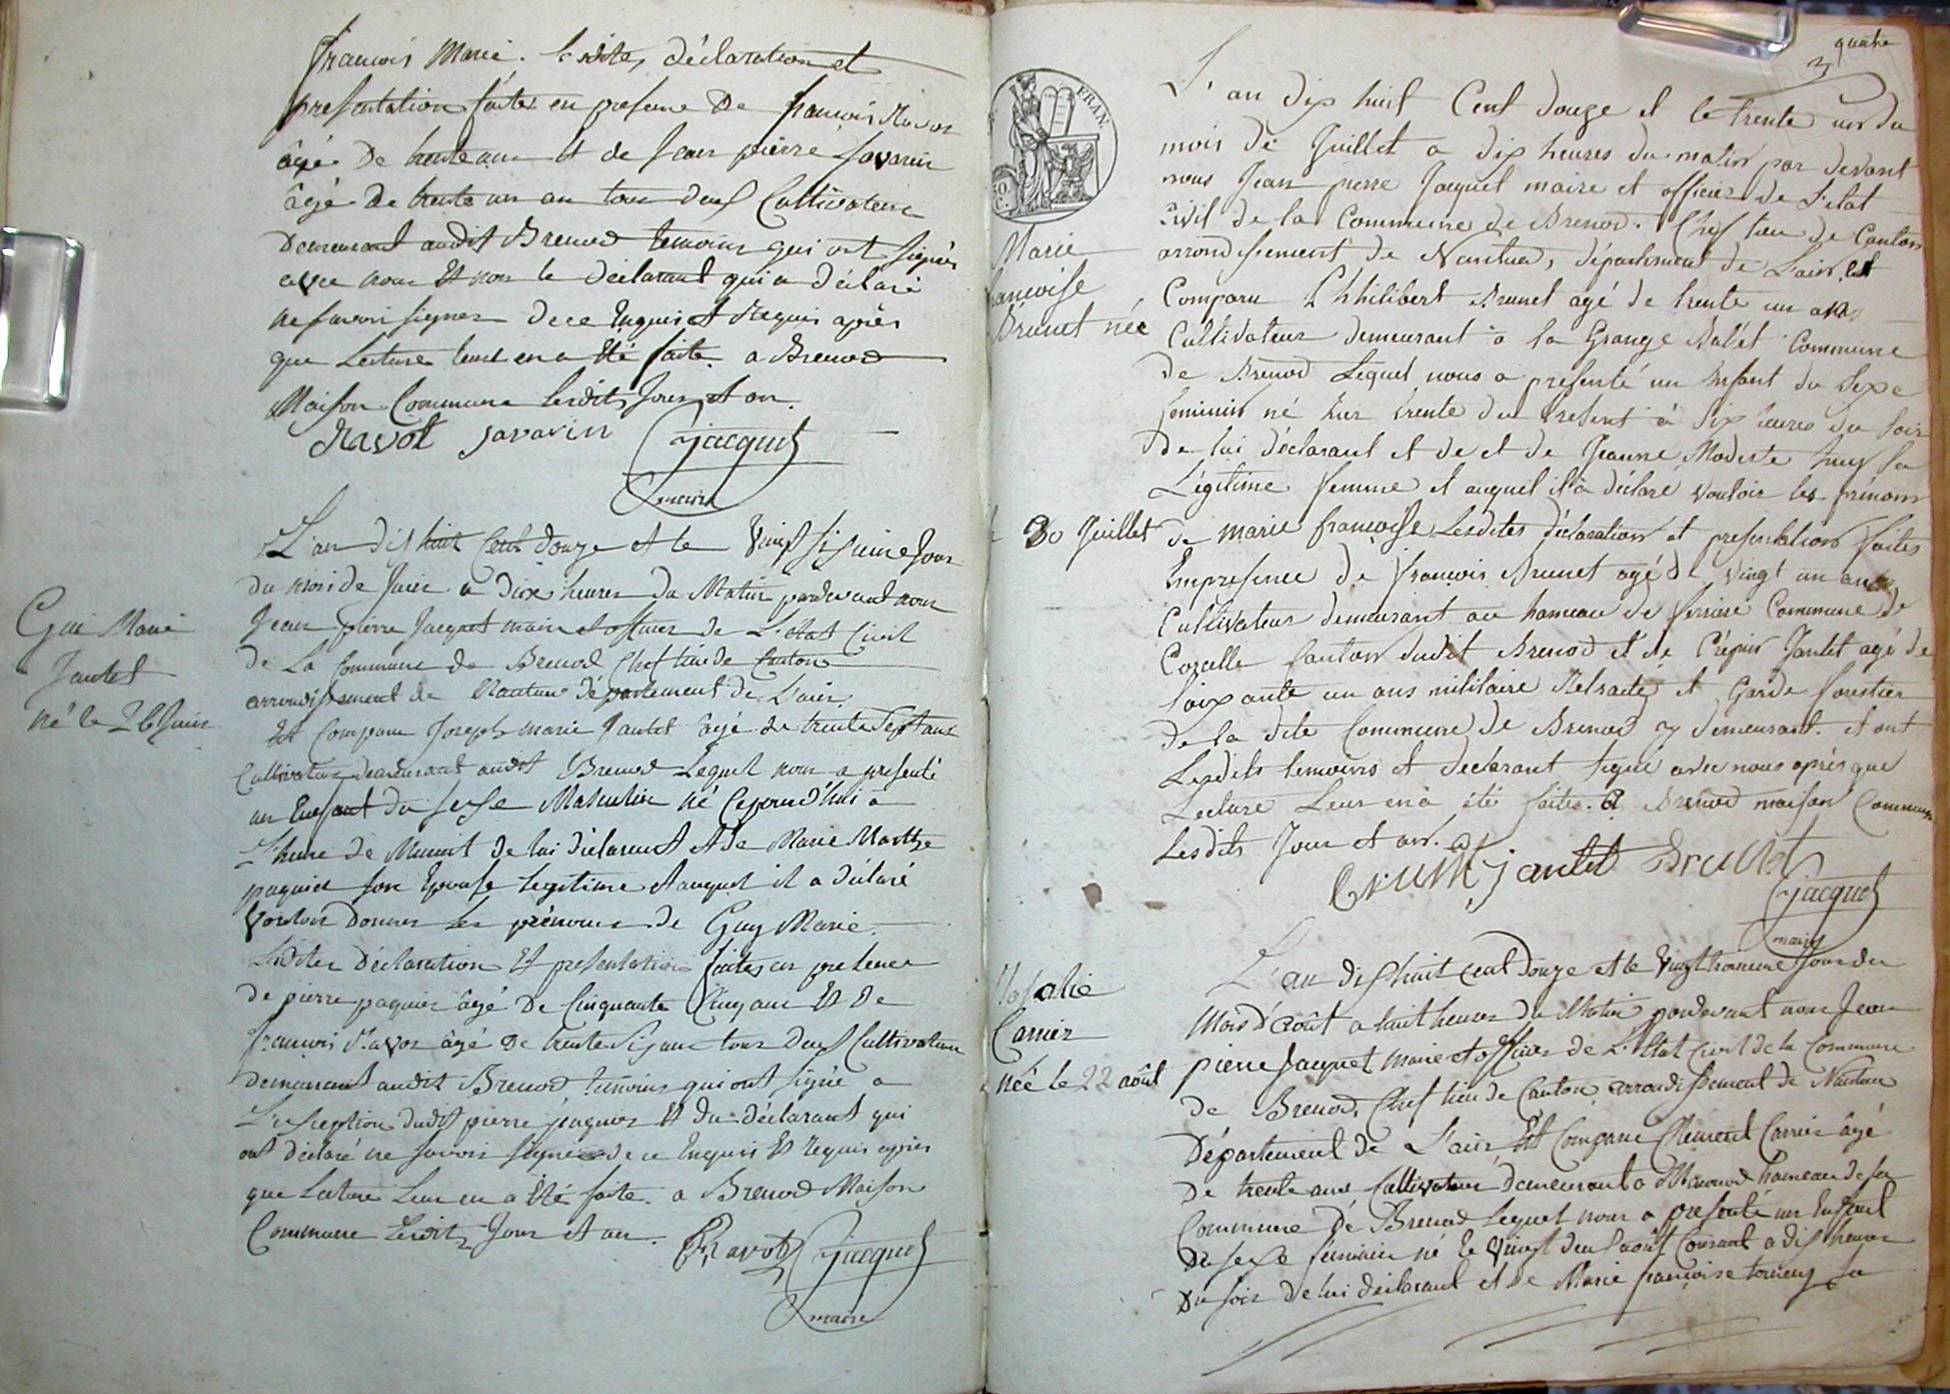 françois Marie. lesdites déclaration et
presentation faites en presence de françois Ravot
âgé de trente ans et de Jean pierre Savarin
âgé de trente un an tous deux Cultivateurs
Demeurant audit Brenod temoins qui ont signés
avec nous et non le déclarant qui a déclaré
ne savoir signer de ce Enquis et Requis après
que Lecture leur en a été faite a Brenod
Maison Commune lesdits Jour et an.
Ravot Savarin Jacquet
maire
L'an dix huit Cent douze et le vingt sixieme Jour
du mois de Juin a dix heures du Matin pardevant nous
Jean pierre Jacquet maire et officier de L'état Civil
de La Commune de Brenod Chef lieu de Canton
arrondissement de Nantua département de L'ain.
Gui Marie
Jantet
né le 26 Juin
Est Comparu Joseph marie Jantet âgé de trente Sept ans
Cultivateur demeurant audit Brenod Lequel nous a presenté
un Enfant du sexe Masculin né Cejourd'hui a
L'heure de Minuit de lui déclarant et de Marie Marthe
paquier son Epouse legitime et auquel il a déclaré
vouloir Donner les prénoms de Guy Marie.
Lesdites Déclaration et presentation faites en presence
de pierre paquier âgé de Cinquante Cinq ans et de
françois Ravot âgé de trente Six ans tous deux Cultivateurs
demeurant audit Brenod temoins qui ont signé a
L'exception dudit pierre paquier et du déclarant qui
ont déclaré ne savoir signer de ce Enquis et requis après
que Lecture Leur en a été faite. a Brenod Maison
Commune Lesdits Jour et an.
Ravot Jacquet
maire
quatre
FRAN.
L'an dix huit Cent douze et le trente un du
mois de Juillet a dix heures du matin par devant
nous Jean pierre Jacquet maire et officier de L'état
civil de la Commune de Brenod. Chef lieu de Canton
arrondissement de Nantua, département de L'ain, est
Marie
françoise
Brunet née
le 30 Juillet
Comparu Phhilibert Brunet agé de trente un ans
Cultivateur demeurant à la Grange Commune
de Brenod Lequel nous a presenté un Enfant du Sexe
feminin né hier trente du Present à Six heures du soir
de lui déclarant et de et de Jeanne Modeste sa
Légitime femme et auquel il a déclaré vouloir les prénoms
de marie françoise Lesdites déclaration et presentation faites
Enpresence de françois Brunet agé de vingt un ans
Cultivateur demeurant au hameau de ferriere Commune de
Corcelle Canton dudit Brenod et de Crépin Jantet agé de
soixante un ans militaire Retraité et Garde forestier
de la dite Commune de Brenod y demeurant. et ont
Lesdits temoins et declarant signé avec nous après que
Lecture Leur en a été faites. a Brenod maison Commune
Lesdits Jour et an.
Brunet jantet Brunet
Jacquet
maire
L'an dix huit cent douze et le vingt troisieme Jour du
Mois d'août a huit heures du Matin pardevant nous Jean
pierre Jacquet maire et officier de L'Etat Civil de la Commune
de Brenod, Chef lieu de Canton arrondissement de Nantua
Rosalie
Carrier
née le 22 août
Département de L'ain Est Comparu Clement Carrier âgé
de trente ans Cultivateur demeurant a hameau de la
Commune de Brenod Lequel nous a presenté un Enfant
du sexe féminin né le vingt deux août Courant a dix heures
du soir de lui déclarant et de Marie françoise sa